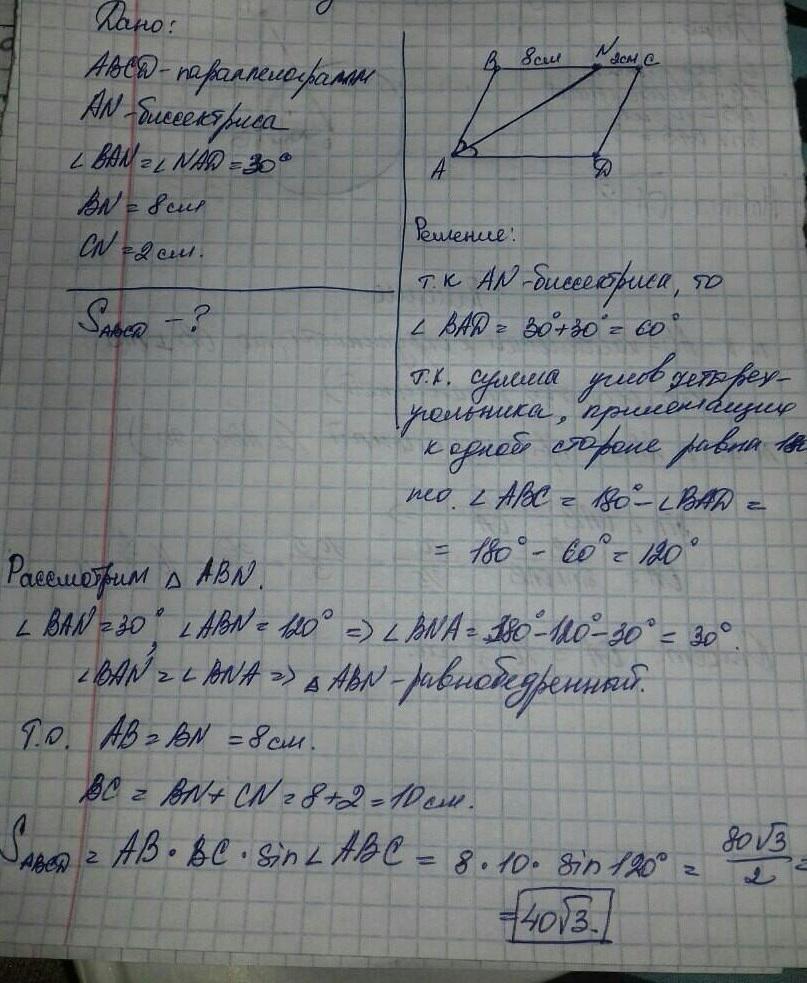 Дано:
ABCD - параллелограмм
AN - биссектриса
∠BAN = ∠NAD = 30°
BN = 8 см
CN = 2 см.
S ABCD - ?
B 8см N 2см C
A D
Решение:
т.к AN - биссектриса, то
∠BAD = 30° + 30° = 60°
Т.к. сумма углов четырех-
угольника, прилежащих
к одной стороне равна 180
то. ∠ABC = 180° - ∠BAD =
= 180° - 60° = 120°
Рассмотрим △ ABN.
∠BAN = 30°, ∠ABN = 120° => ∠BNA = 180° - 120° - 30° = 30°.
∠BAN = ∠BNA => △ ABN - равнобедренный.
Т.о. AB = BN = 8 см.
BC = BN + CN = 8 + 2 = 10 см.
S ABCD = AB · BC · sin∠ABC = 8 · 10 · sin 120° = 80√3/2 =
= 40√3.